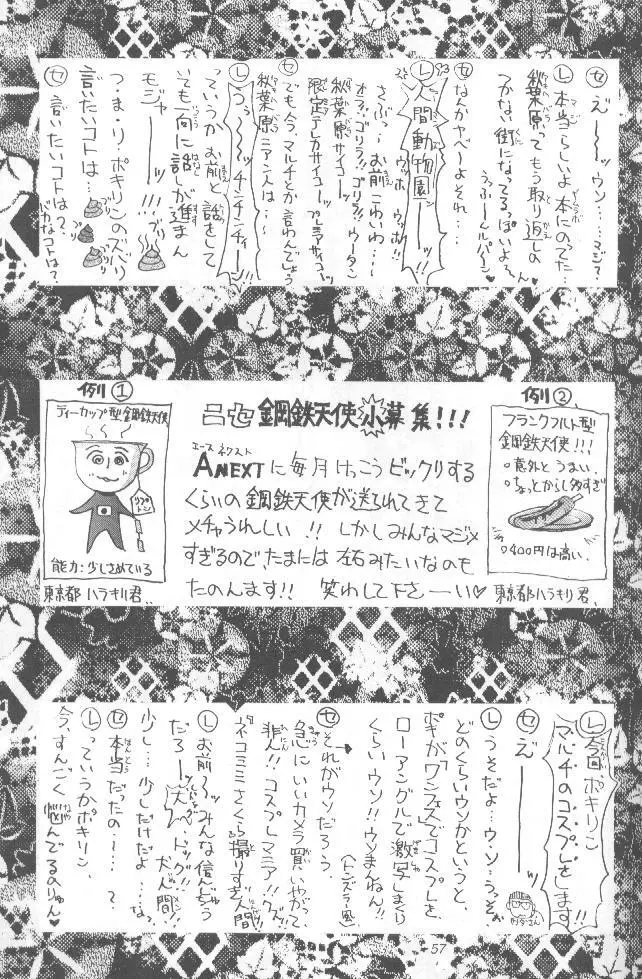 セ えー〜ッ ウソ……マジ？
L 本当らしいよ 本にのってた…
秋葉原ってもう取り返しの
つかない街になってるっぽいよ〜
うっふ〜んルパ〜ン♥
セ なんかヤベーよそれ…
L 人間動物園ーーッ!!
ウッホ ウッホ!!
さぶっ…お前こわいわ…
オラ、ゴリラ!!ゴリラ!! ウータン
秋葉原サイコー
限定テレカサイコー プレミアサイコー
セ でも今、マルチとか言わんでしょう
秋葉原マニア人は……
L つぅ〜〜チーンチンチィーン!!
っていうかお前と話をして
いても一向に話しが進まん
モジャーーッ!!!
つ・ま・り・ポキリンのズバリ
言いたいコトは…
セ 言いたいコトは？
バカなコトは？
例①
ティーカップ型鋼鉄天使
リプトン
能力：少しさめている
東京都 ハラキリ君、
鋼鉄天使小募集!!!
エース ネクスト
ANEXTに毎月けっこうビックリする
くらいの鋼鉄天使が送られてきて
メチャうれしい!! しかしみんなマジメ
すぎるので、たまには左右みたいなのも
たのんます!! 笑わして下さーい♥
例②
フランクフルト型
鋼鉄天使!!!
○意外とうまい、
○ちょっとからし多すぎ
○400円は高い、
東京都ハラキリ君、
L 今回ポキリン
マルチのコスプレをします!!
セ えーーーッ
L うそだよ…ウソ…うっそぉ
どのくらいウソかというと、
ポキが「ワンフェス」でコスプレを、
ローアングルで激写しまり
くらいウソ!!ウソまんねん!!
(トンズラー風)
セ それがウソだろう
急にいいカメラ買いやがって
非人!!コスプレマニア!!クズ!!
ネコミミさくら撮りすぎ人間!!
L お前〜みんな信じちゃう
だろーッ犬、ドッグ!!犬人間!!
少し…少しだけだよ…なっ
セ 本当だったの〜…？
L っていうかポキリン、
今すんごく悩んでるのりゅん♥
57